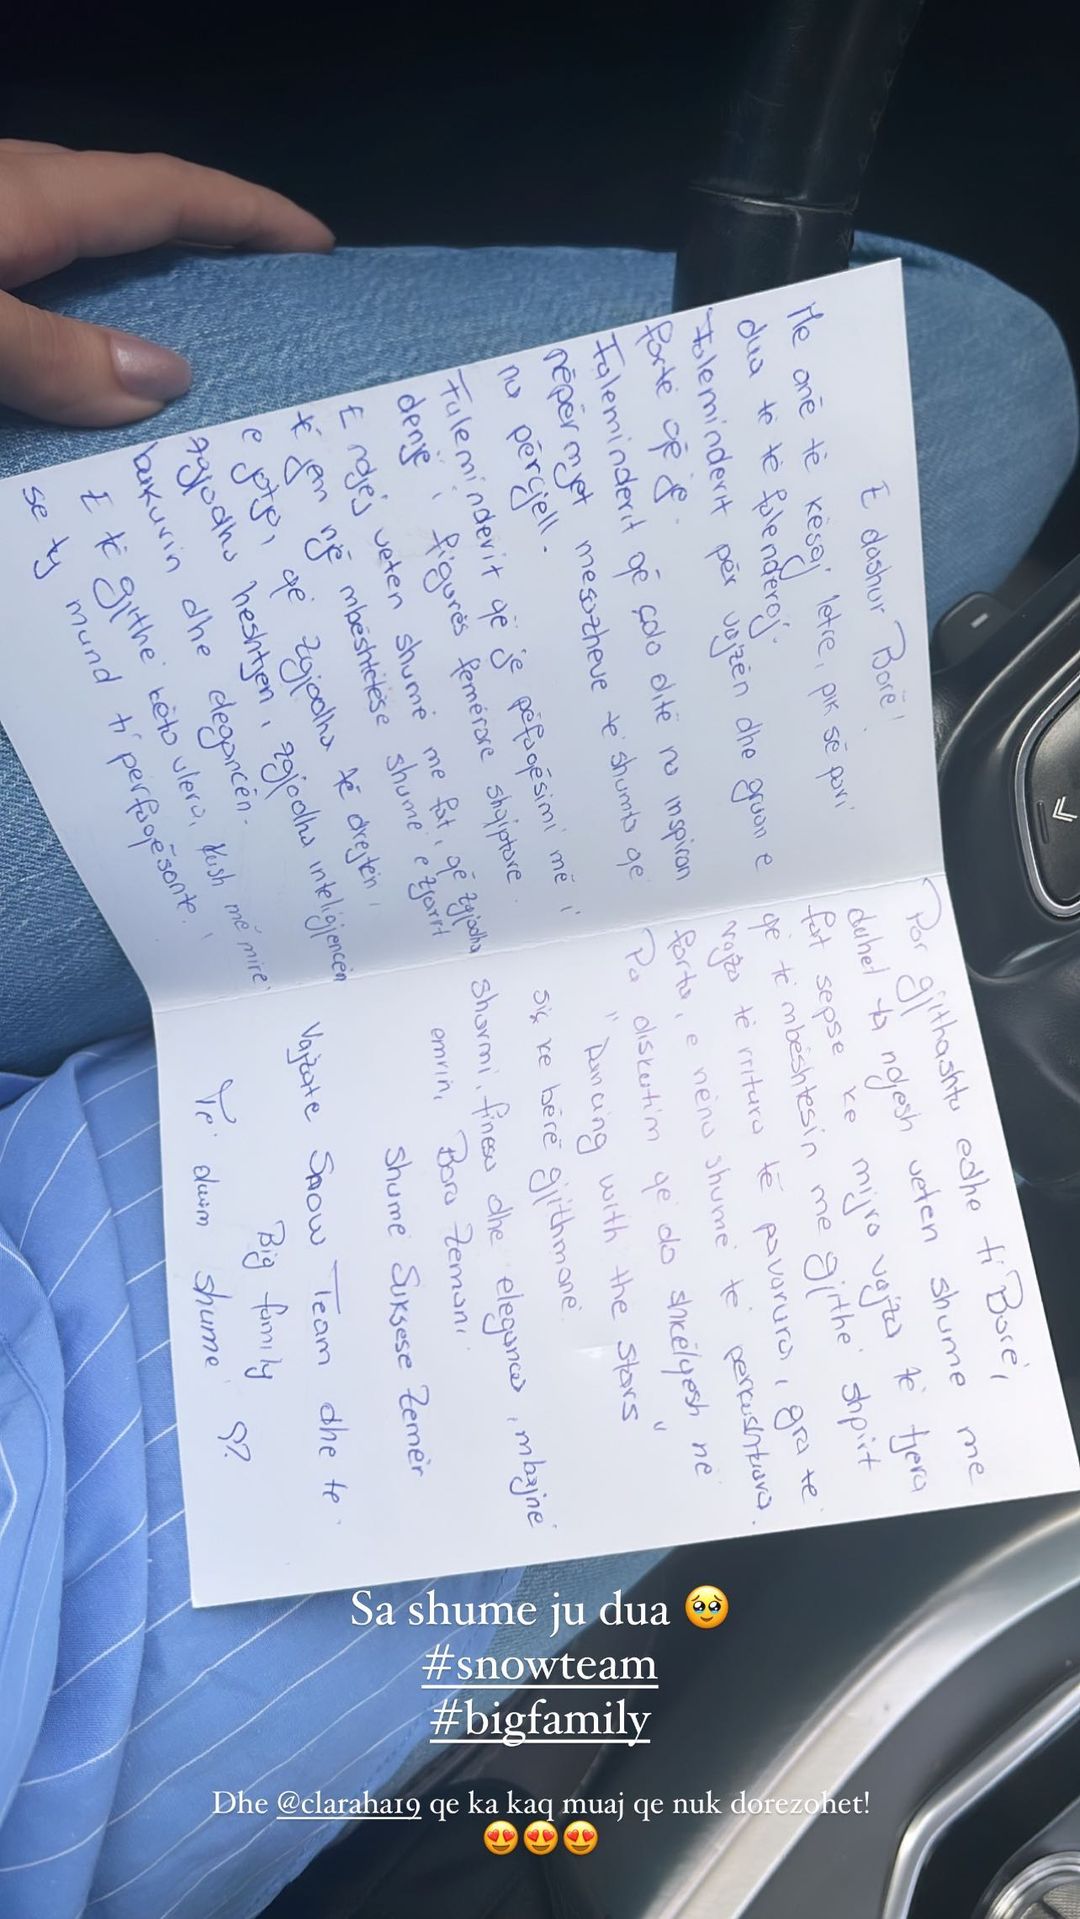 E dashur Borë!
Me anë të kësaj letre, pik së pari
dua të të falenderoj.
Faleminderit për vajzën dhe gruan e
fortë që je.
Faleminderit që çdo ditë na inspiron
nëpërmjet mesazheve të shumta që
na përcjell.
Faleminderit që je përfaqësimi më i
denjë i figurës femërore shqiptare.
E ndjej veten shumë me fat, që zgjodha
të jem një mbështetëse shumë e zjarrt
e jotja, që zgjodha të drejtën,
zgjodha heshtjen, zgjodha inteligjencën
bukurin dhe elegancën.
E të gjitha këto vlera, kush më mirë
se ty mund ti përfaqësonte.
Por gjithashtu edhe ti Borë,
duhet ta ndjesh veten shumë me
fat sepse ke mijra vajza të tjera
që të mbështesin me gjithë shpirt
vajza të rritura të pavarura, gra të
forta, e nëna shumë të perkushtuara.
Pa diskutim që do shkëlqesh në
" Dancing with the stars "
siç ke bërë gjithmonë.
Sharmi, finesa dhe eleganca, mbajnë
emrin, Bora Zemani.
Shumë Suksese Zemër
Vajzate Snow Team dhe të
Big family
Të duam shumë
Sa shume ju dua 🥹
#snowteam
#bigfamily
Dhe @claraha19 qe ka kaq muaj qe nuk dorezohet!
😍😍😍